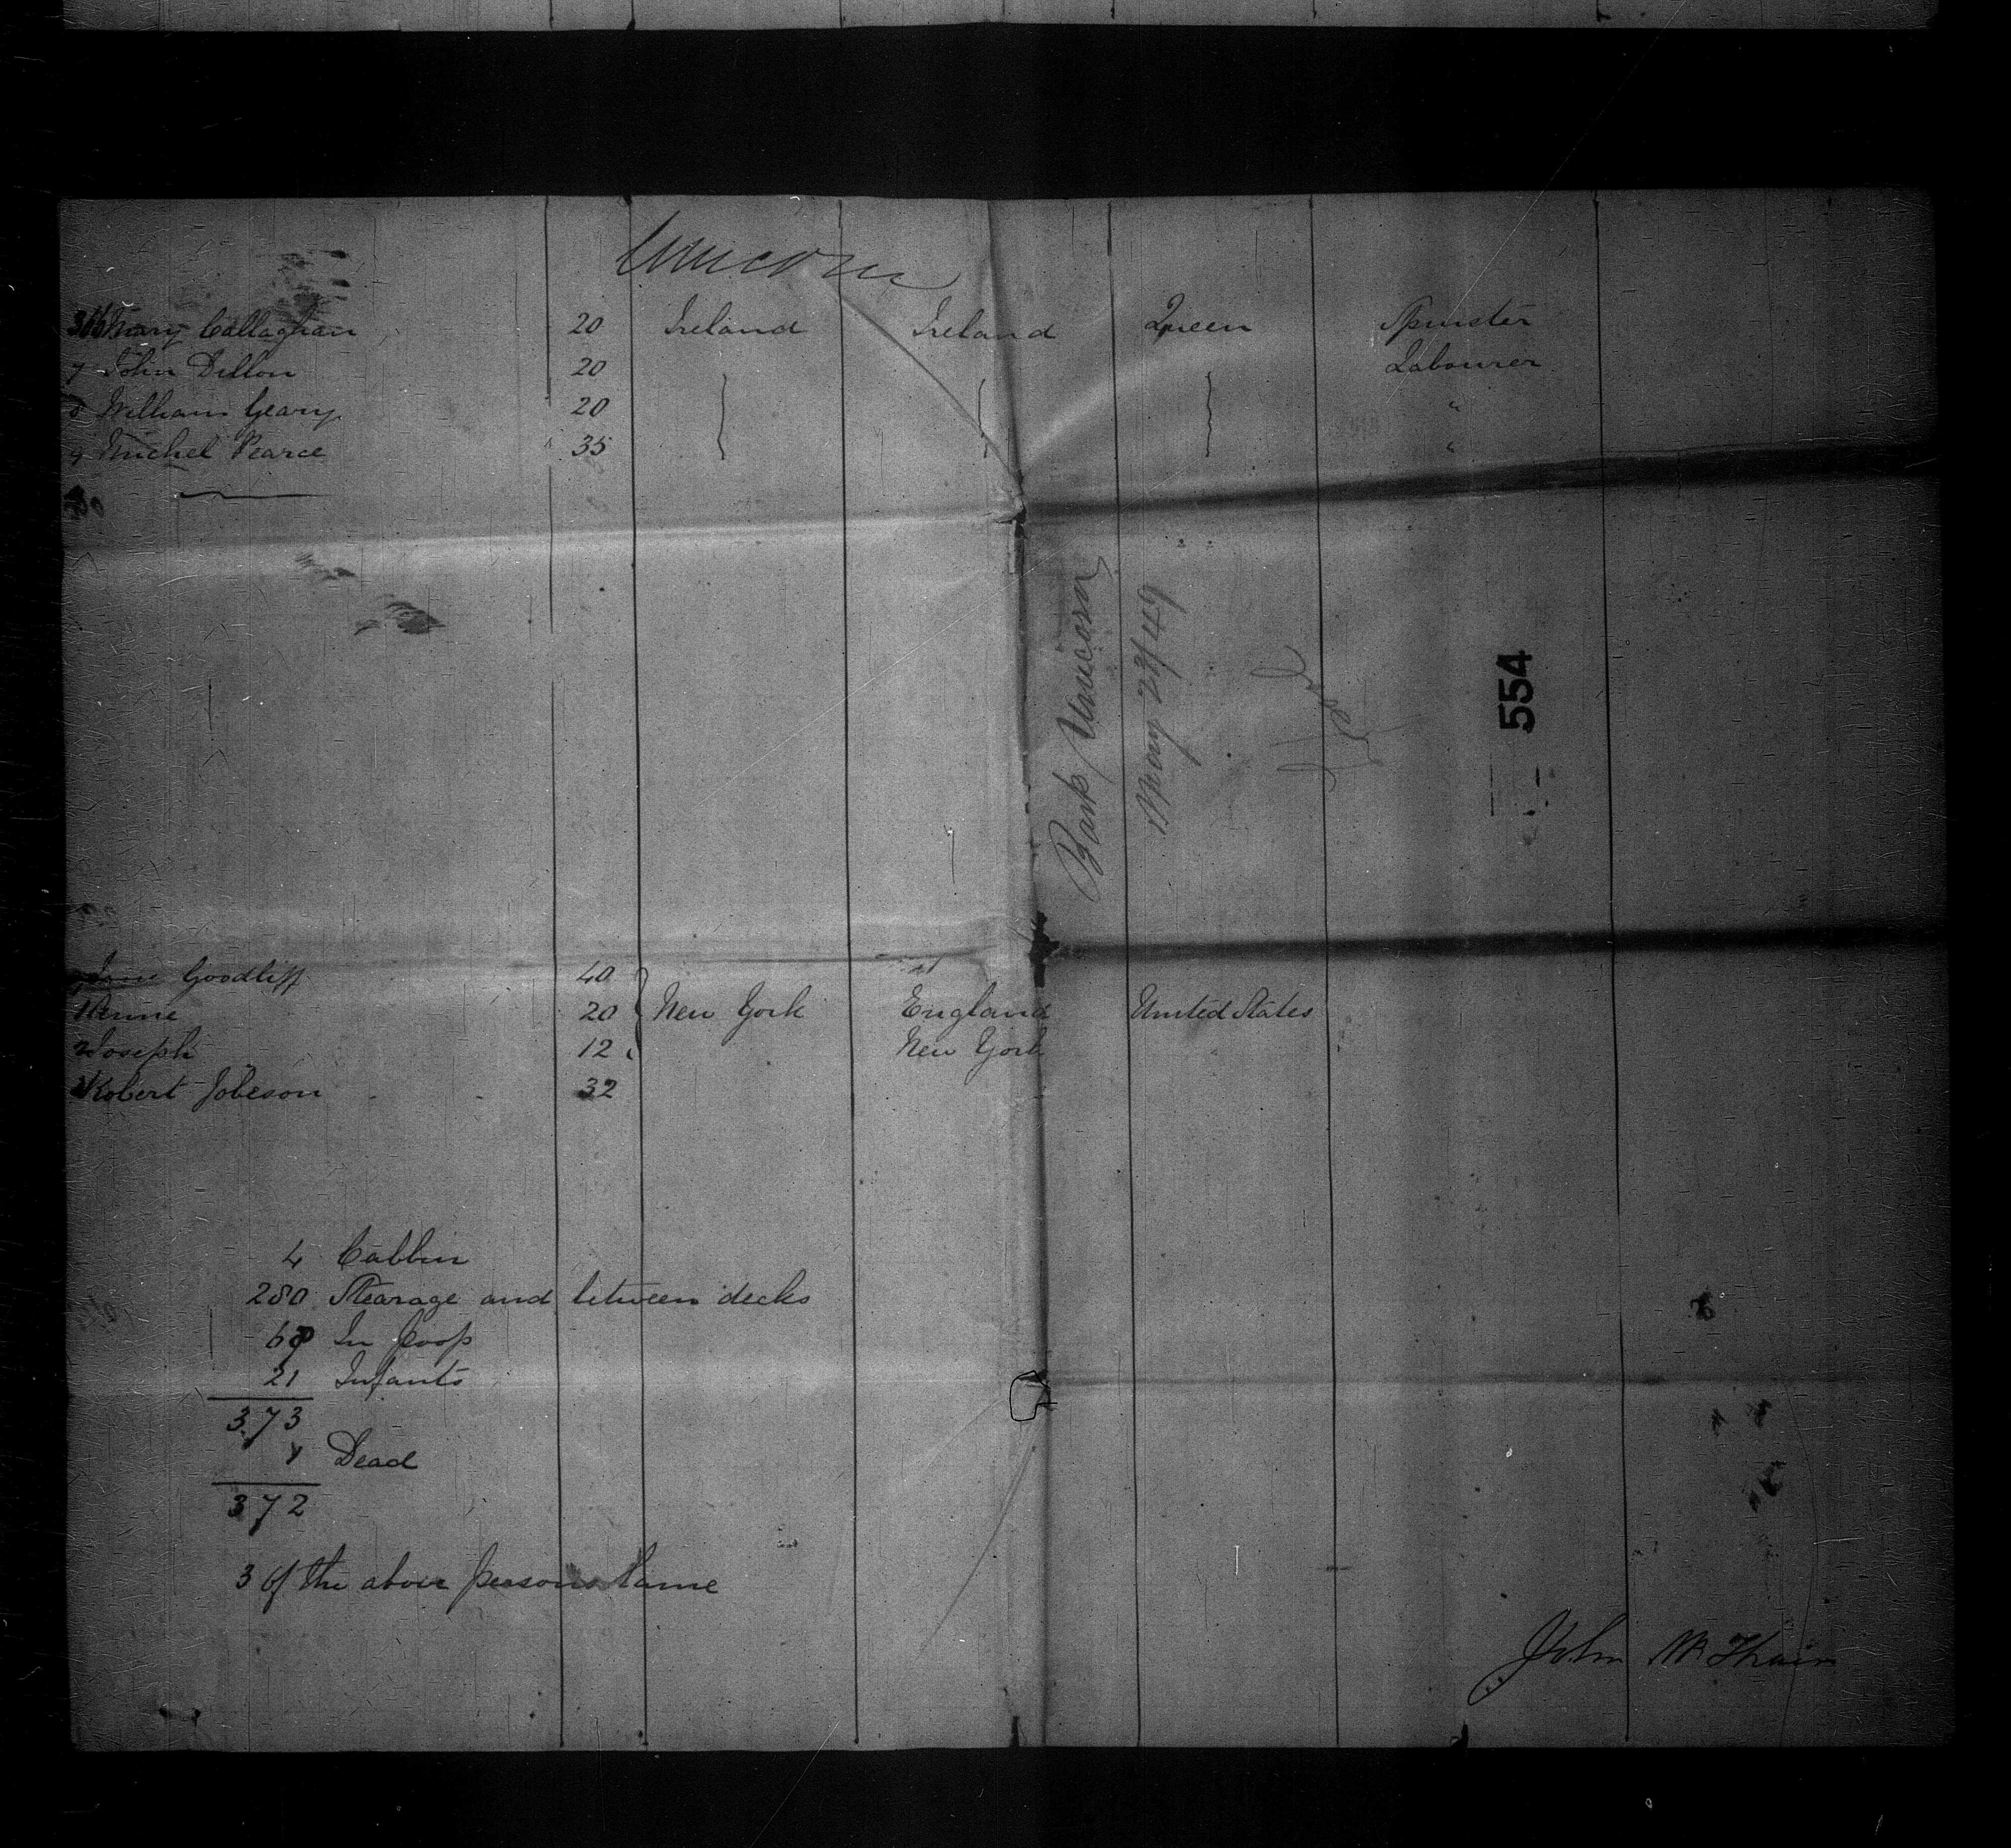 Unicorn
366 Mary Callaghan 20 Ireland Ireland Queen Spinster
7 John Dillon 20 Labourer
8 William Geary 20 "
9 Michel Pearce 35 "
Bark Unicorn
May 23/49
554
Jane Goodliff 40
1 Anne 20 New York England United States
2 Joseph 12 New York
Robert Jobeson 32
4 Cabbin
280 Stearage and between decks
68 In Poop
21 Infants
373
1 Dead
372
3 of the above persons lame
John McThain